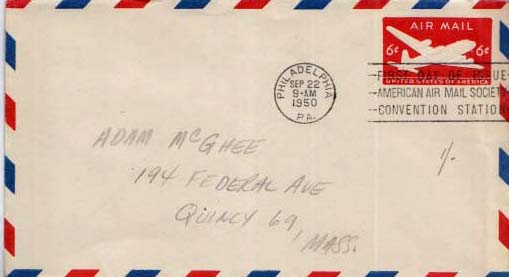 AIR MAIL
6¢ 6¢
UNITED STATES OF AMERICA
PHILADELPHIA
SEP 22
9-AM
1950
PA.
FIRST DAY OF ISSUE
AMERICAN AIR MAIL SOCIETY
CONVENTION STATION
ADAM McGHEE
194 FEDERAL AVE
QUINCY 69,
MASS.
1/-